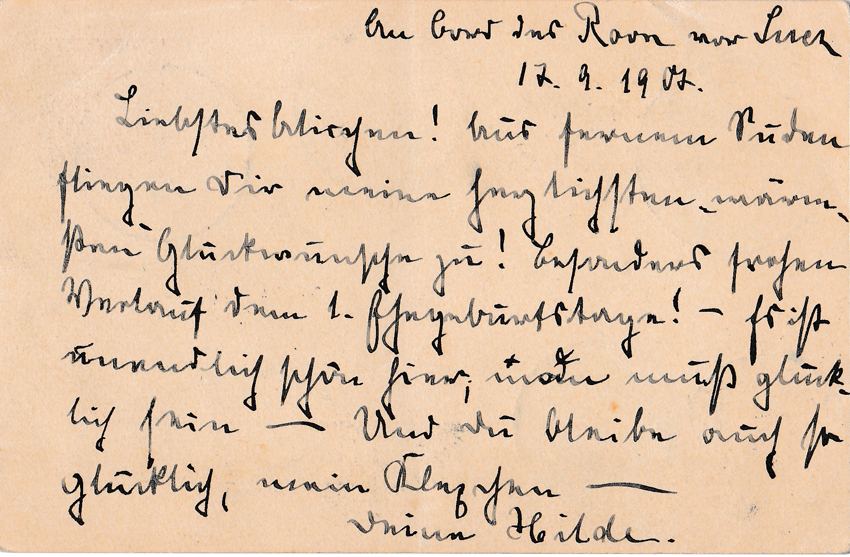 An Bord des Roon vor Suez
17. 9. 1907.
Liebstes ! Aus fernem Süden
fliegen Dir meine herzlichsten, wärm-
sten Glückwünsche zu! Besonders frohen
Verlauf dem 1. Ehegeburtstage! – Es ist
unendlich schön hier; man muß glück-
lich sein — Und du bleibe auch so
glücklich, mein —
Deine Hilde.